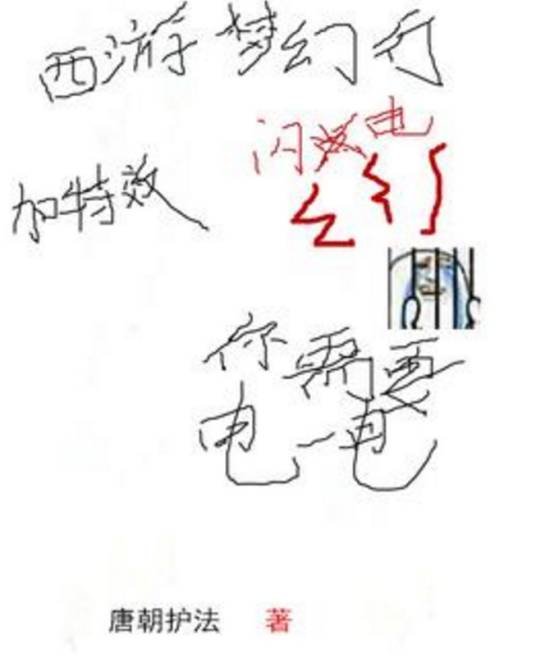 西游梦幻行
闪电
加特效
你需要
电一电
唐朝护法 著